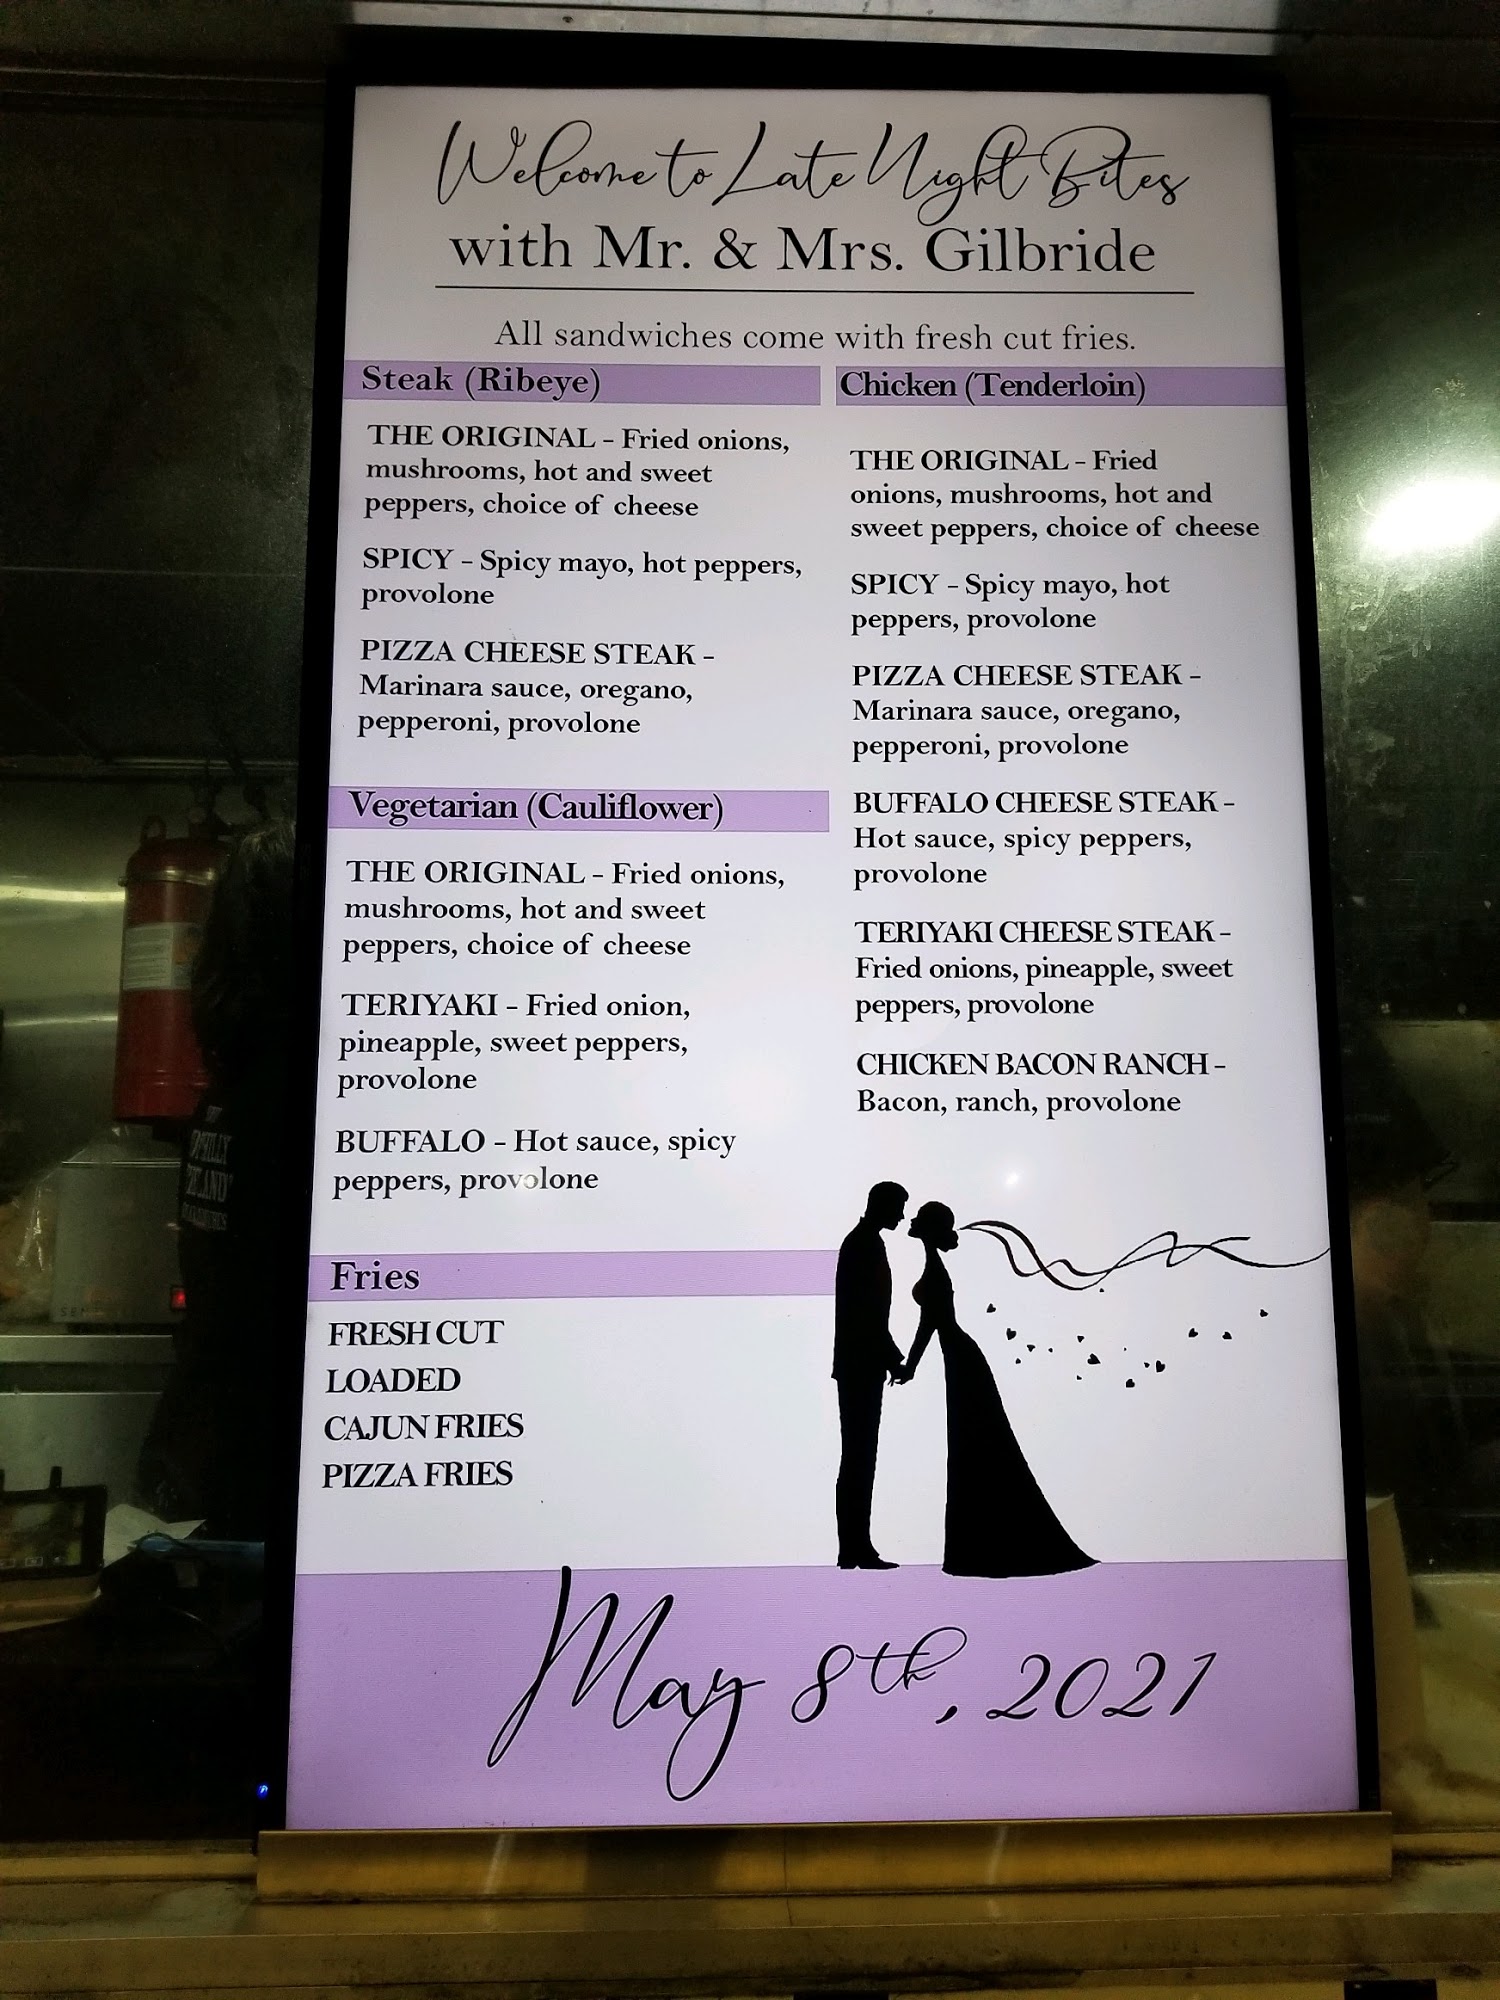 Welcome to Late Night Bites
with Mr. & Mrs. Gilbride
All sandwiches come with fresh cut fries.
Steak (Ribeye)
THE ORIGINAL - Fried onions,
mushrooms, hot and sweet
peppers, choice of cheese
SPICY - Spicy mayo, hot peppers,
provolone
PIZZA CHEESE STEAK -
Marinara sauce, oregano,
pepperoni, provolone
Vegetarian (Cauliflower)
THE ORIGINAL - Fried onions,
mushrooms, hot and sweet
peppers, choice of cheese
TERIYAKI - Fried onion,
pineapple, sweet peppers,
provolone
BUFFALO - Hot sauce, spicy
peppers, provolone
Fries
FRESH CUT
LOADED
CAJUN FRIES
PIZZA FRIES
Chicken (Tenderloin)
THE ORIGINAL - Fried
onions, mushrooms, hot and
sweet peppers, choice of cheese
SPICY - Spicy mayo, hot
peppers, provolone
PIZZA CHEESE STEAK -
Marinara sauce, oregano,
pepperoni, provolone
BUFFALO CHEESE STEAK -
Hot sauce, spicy peppers,
provolone
TERIYAKI CHEESE STEAK -
Fried onions, pineapple, sweet
peppers, provolone
CHICKEN BACON RANCH -
Bacon, ranch, provolone
May 8th, 2021